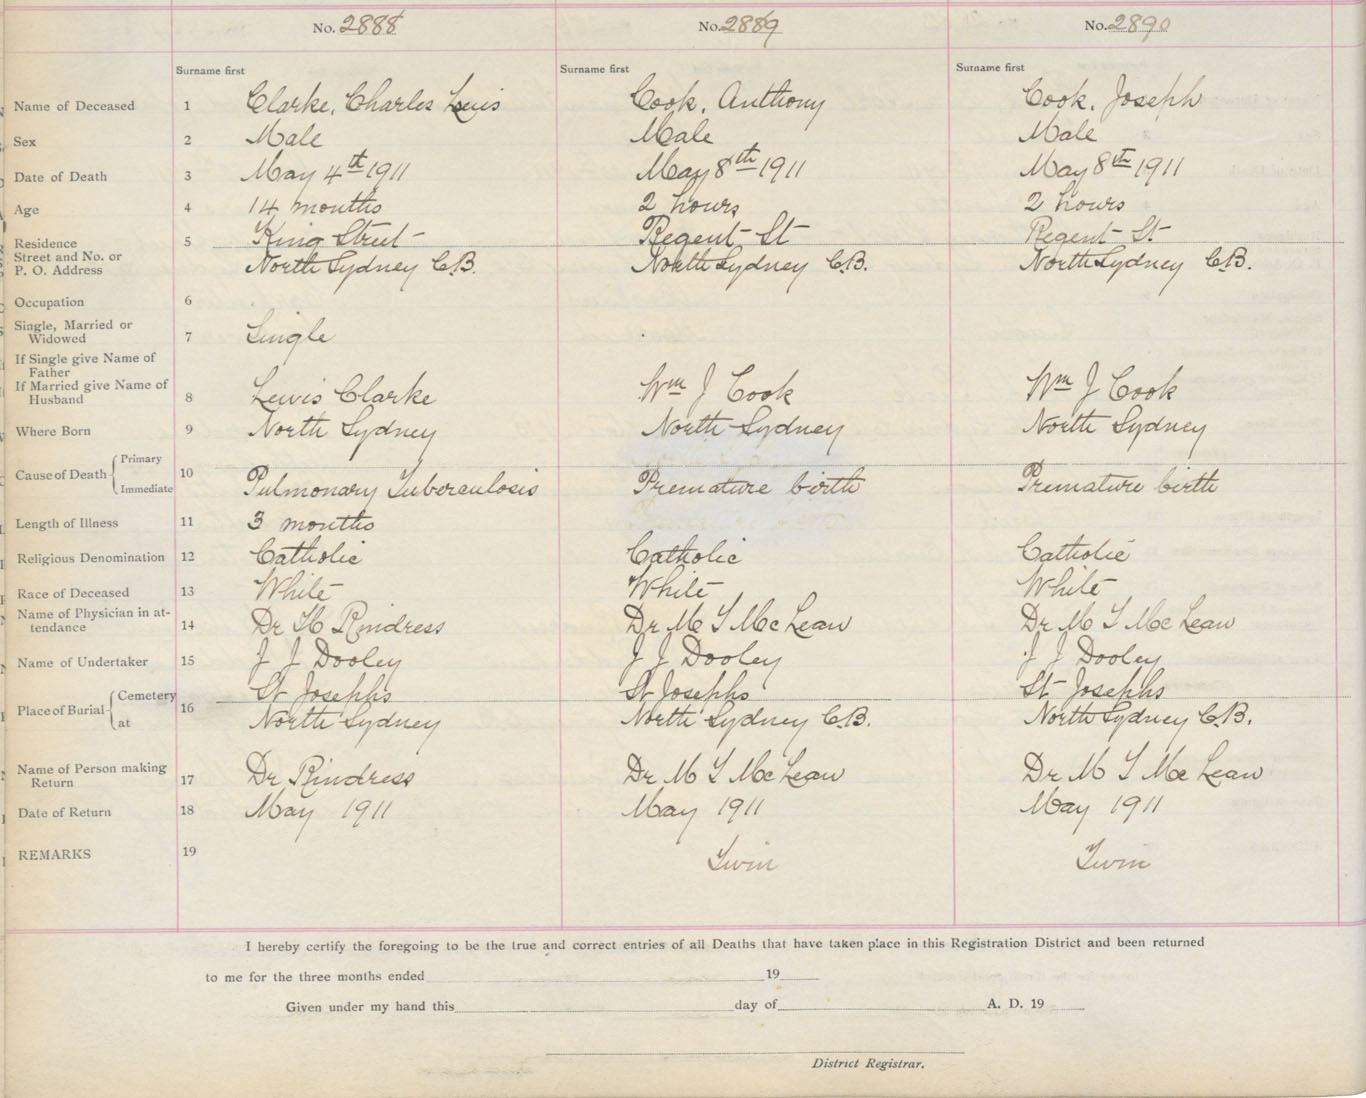 No. 2888 No. 2889 No. 2890
Surname first Surname first Surname first
Name of Deceased 1 Clarke, Charles Lewis Cook, Anthony Cook, Joseph
Sex 2 Male Male Male
Date of Death 3 May 4th 1911 May 8th 1911 May 8th 1911
Age 4 14 months 2 hours 2 hours
Residence 5 King Street Regent St Regent St
Street and No. or
P. O. Address North Sydney C.B. North Sydney C.B. North Sydney C.B.
Occupation 6
Single, Married or
Widowed 7 Single
If Single give Name of
Father
If Married give Name of
Husband 8 Lewis Clarke Wm J Cook Wm J Cook
Where Born 9 North Sydney North Sydney North Sydney
Cause of Death Primary 10
Immediate Pulmonary Tuberculosis Premature birth Premature birth
Length of Illness 11 3 months
Religious Denomination 12 Catholic Catholic Catholic
Race of Deceased 13 White White White
Name of Physician in at-
tendance 14 Dr H Rindress Dr M T McLean Dr M T McLean
Name of Undertaker 15 J J Dooley J J Dooley J J Dooley
Place of Burial Cemetery 16 St Josephs St Josephs St Josephs
at North Sydney North Sydney C.B. North Sydney C.B.
Name of Person making
Return 17 Dr Rindress Dr M T McLean Dr M T McLean
Date of Return 18 May 1911 May 1911 May 1911
REMARKS 19 Twin Twin
I hereby certify the foregoing to be the true and correct entries of all Deaths that have taken place in this Registration District and been returned
to me for the three months ended 19
Given under my hand this day of A. D. 19
District Registrar.